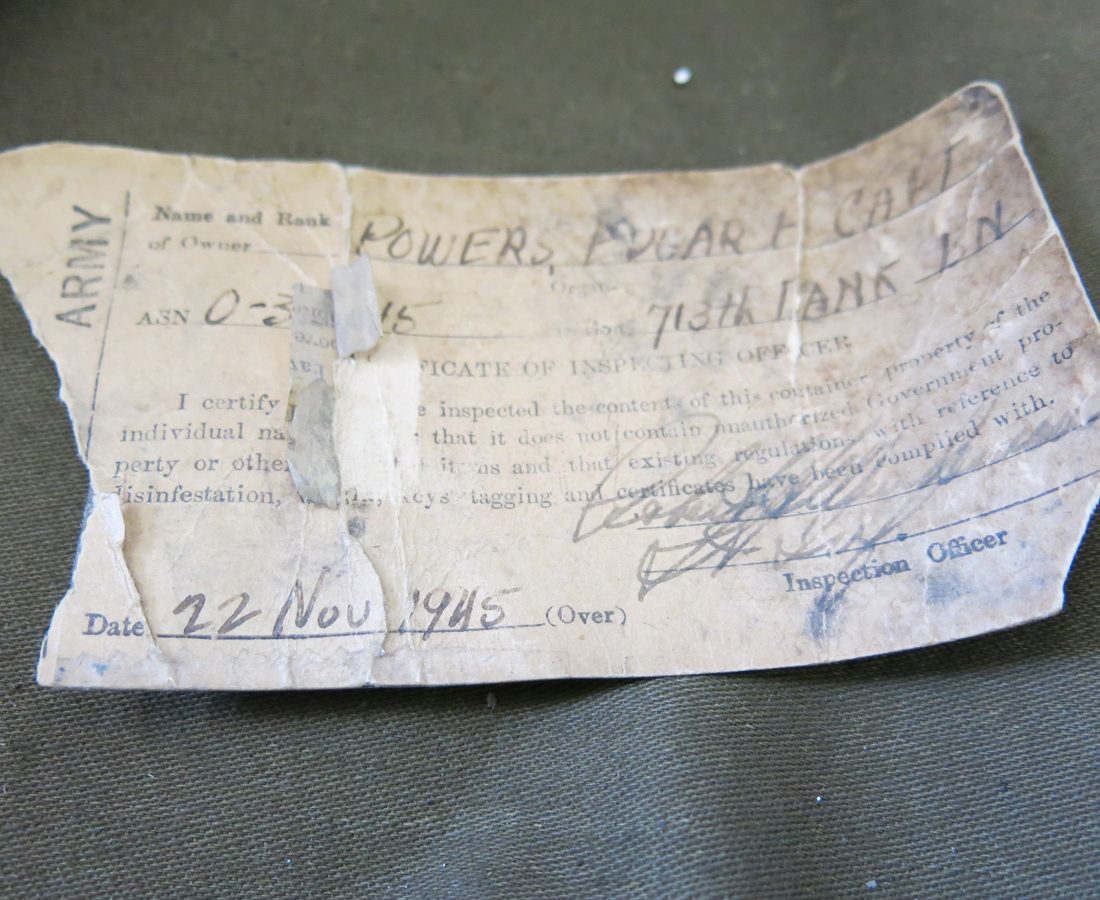 ARMY
Name and Rank
of Owner POWERS, EDGAR F CAPT
Organ-
ASN O-3 15 ization 713th TANK BN
FICATE OF INSPECTING OFFICER
I certify e inspected the contents of this container, property of the
individual na that it does not contain unauthorized Government pro-
perty or other items and that existing regulations with reference to
disinfestation, keys tagging and certificates have been complied with.
Inspection Officer
Date 22 Nov 1945 (Over)